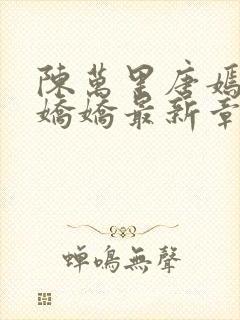 陳萬里唐嫣
嬌嬌最新章
蟬鳴無聲